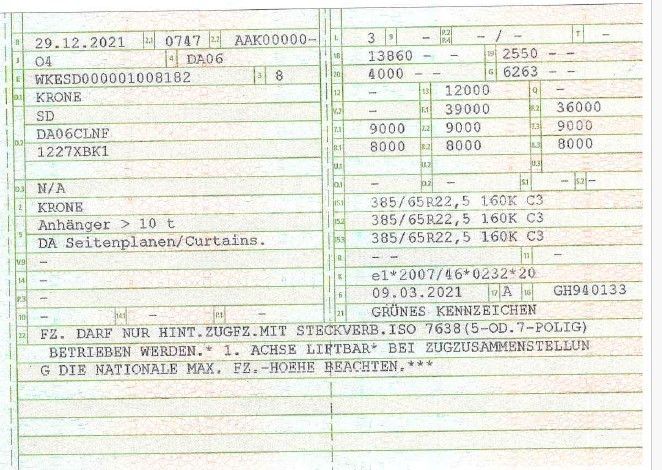 B 29.12.2021 2.1 0747 2.2 AAK00000-
J 04 4 DA06
E WKESD000001008182 3 8
D.1 KRONE
SD
DA06CLNF
D.2 1227XBK1
D.3 N/A
2 KRONE
5 Anhänger > 10 t
DA Seitenplanen/Curtains.
V.9 -
14 -
P.3 -
10 - 14.1 - P.1 -
L 3 9 - P.2 P.4 - / - T -
18 13860 - - 19 2550 - -
20 4000 - - G 6263 - -
12 - 13 12000 Q -
V.7 - F.1 39000 F.2 36000
7.1 9000 7.2 9000 7.3 9000
8.1 8000 8.2 8000 8.3 8000
U.1 U.2 U.3
O.1 - O.2 - S.1 - S.2 -
15.1 385/65R22,5 160K C3
15.2 385/65R22,5 160K C3
15.3 385/65R22,5 160K C3
R - - 11 -
K e1*2007/46*0232*20
6 09.03.2021 17 A 16 GH940133
21 GRÜNES KENNZEICHEN
22 FZ. DARF NUR HINT.ZUGFZ.MIT STECKVERB.ISO 7638(5-OD.7-POLIG)
BETRIEBEN WERDEN.* 1. ACHSE LIFTBAR* BEI ZUGZUSAMMENSTELLUN
G DIE NATIONALE MAX. FZ.-HOEHE BEACHTEN.***